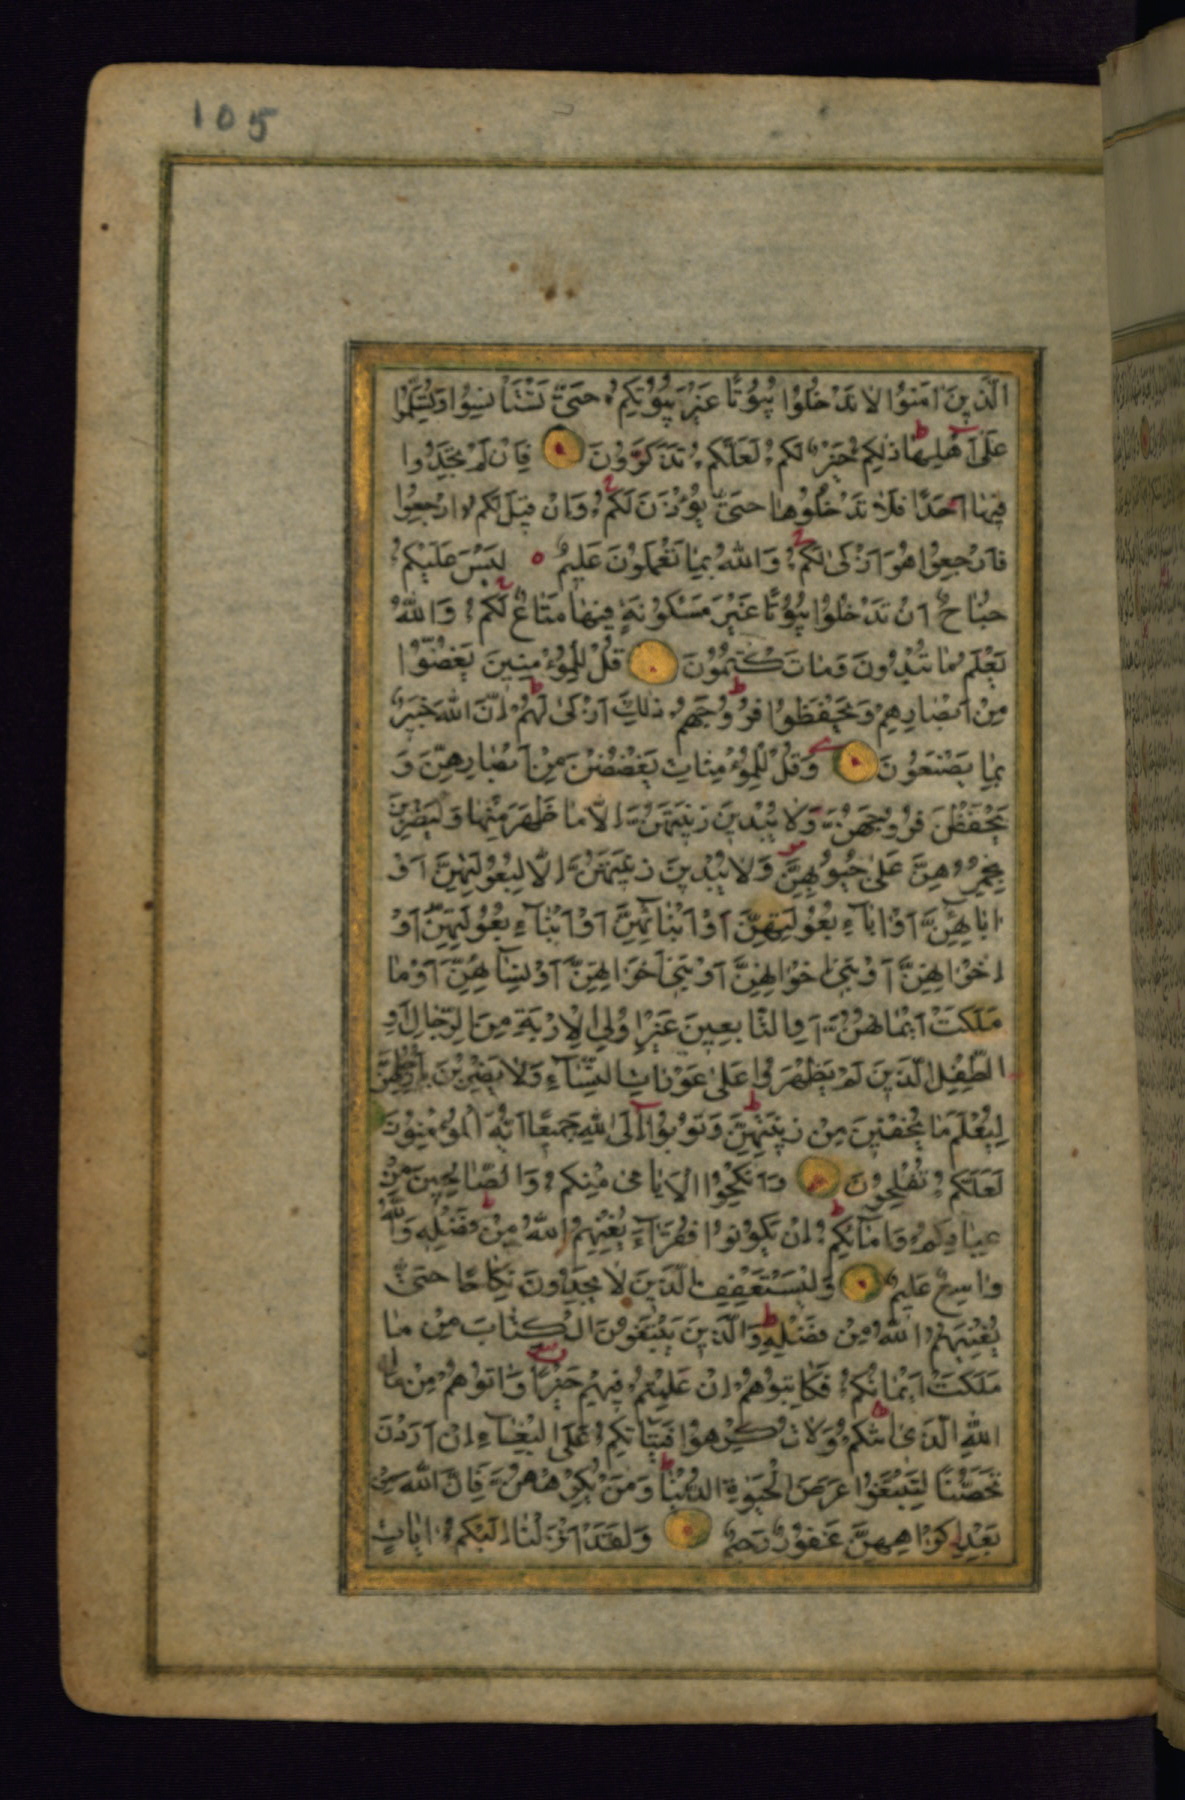 105
الَّذِينَ اٰمَنُوا لا تَدْخُلُوا بُيُوتًا غَيْرَ بُيُوتِكُمْ حَتّىٰ تَسْتَأْنِسُوا وَتُسَلِّمُوا
عَلىٰ اَهْلِهٰا ذٰلِكُمْ خَيْرٌ لَكُمْ لَعَلَّكُمْ تَذَكَّرُونَ فَاِنْ لَمْ تَجِدُوا
فِيهٰا اَحَدًا فَلاٰ تَدْخُلُوهٰا حَتّىٰ يُؤْذَنَ لَكُمْ وَاِنْ قِيلَ لَكُمُ ارْجِعُوا
فَارْجِعُوا هُوَ اَزْكىٰ لَكُمْ وَاللّٰهُ بِمٰا تَعْمَلُونَ عَلِيمٌ لَيْسَ عَلَيْكُمْ
جُنٰاحٌ اَنْ تَدْخُلُوا بُيُوتًا غَيْرَ مَسْكُونَةٍ فِيهٰا مَتٰاعٌ لَكُمْ وَاللّٰهُ
يَعْلَمُ مٰا تُبْدُونَ وَمٰا تَكْتُمُونَ قُلْ لِلْمُؤْمِنِينَ يَغُضُّوا
مِنْ اَبْصٰارِهِمْ وَيَحْفَظُوا فُرُوجَهُمْ ذٰلِكَ اَزْكىٰ لَهُمْ اِنَّ اللّٰهَ خَبِيرٌ
بِمٰا يَصْنَعُونَ وَقُلْ لِلْمُؤْمِنٰاتِ يَغْضُضْنَ مِنْ اَبْصٰارِهِنَّ وَ
يَحْفَظْنَ فُرُوجَهُنَّ وَلاٰ يُبْدِينَ زِينَتَهُنَّ اِلاّٰ مٰا ظَهَرَ مِنْهٰا وَلْيَضْرِبْنَ
بِخُمُرِهِنَّ عَلىٰ جُيُوبِهِنَّ وَلاٰ يُبْدِينَ زِينَتَهُنَّ اِلاّٰ لِبُعُولَتِهِنَّ اَوْ
اٰبٰائِهِنَّ اَوْ اٰبٰاءِ بُعُولَتِهِنَّ اَوْ اَبْنٰائِهِنَّ اَوْ اَبْنٰاءِ بُعُولَتِهِنَّ اَوْ
اِخْوٰانِهِنَّ اَوْ بَنِي اِخْوٰانِهِنَّ اَوْ بَنِي اَخَوٰاتِهِنَّ اَوْ نِسٰائِهِنَّ اَوْ مٰا
مَلَكَتْ اَيْمٰانُهُنَّ اَوِ التّٰابِعِينَ غَيْرِ اُولِي الْاِرْبَةِ مِنَ الرِّجٰالِ اَوِ
الطِّفْلِ الَّذِينَ لَمْ يَظْهَرُوا عَلىٰ عَوْرٰاتِ النِّسٰاءِ وَلاٰ يَضْرِبْنَ بِاَرْجُلِهِنَّ
لِيُعْلَمَ مٰا يُخْفِينَ مِنْ زِينَتِهِنَّ وَتُوبُوا اِلَى اللّٰهِ جَمِيعًا اَيُّهَ الْمُؤْمِنُونَ
لَعَلَّكُمْ تُفْلِحُونَ وَاَنْكِحُوا الْاَيٰامىٰ مِنْكُمْ وَالصّٰالِحِينَ مِنْ
عِبٰادِكُمْ وَاِمٰائِكُمْ اِنْ يَكُونُوا فُقَرٰاءَ يُغْنِهِمُ اللّٰهُ مِنْ فَضْلِهِ وَاللّٰهُ
وٰاسِعٌ عَلِيمٌ وَلْيَسْتَعْفِفِ الَّذِينَ لاٰ يَجِدُونَ نِكٰاحًا حَتّىٰ
يُغْنِيَهُمُ اللّٰهُ مِنْ فَضْلِهِ وَالَّذِينَ يَبْتَغُونَ الْكِتٰابَ مِمّٰا
مَلَكَتْ اَيْمٰانُكُمْ فَكٰاتِبُوهُمْ اِنْ عَلِمْتُمْ فِيهِمْ خَيْرًا وَاٰتُوهُمْ مِنْ مٰالِ
اللّٰهِ الَّذِي اٰتٰكُمْ وَلاٰ تُكْرِهُوا فَتَيٰاتِكُمْ عَلَى الْبِغٰاءِ اِنْ اَرَدْنَ
تَحَصُّنًا لِتَبْتَغُوا عَرَضَ الْحَيٰوةِ الدُّنْيٰا وَمَنْ يُكْرِهْهُنَّ فَاِنَّ اللّٰهَ مِنْ
بَعْدِ اِكْرٰاهِهِنَّ غَفُورٌ رَحِيمٌ وَلَقَدْ اَنْزَلْنٰا اِلَيْكُمْ اٰيٰاتٍ